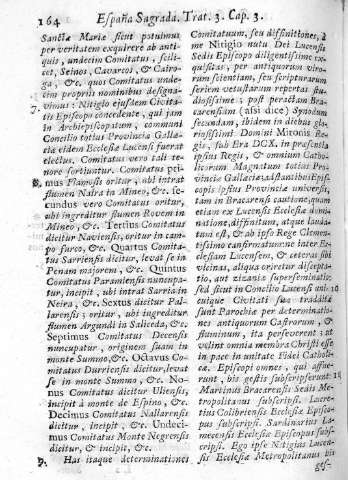 164 España Sagrada. Trat. 3. Cap. 3.
Sanctæ Mariæ sicut potuimus
per veritatem exquirere ab anti-
quis, undecim Comitatus, scili-
cet, Seinos, Cavarcos, & Cairo-
ga, &c. quos Comitatus unde-
cim propriis nominibus designa-
7. vimus: Nitigio ejusdem Civita-
tis Episcopo concedente, qui jam
in Archiepiscopatum, communi
Concilio totius Provinciæ Gallæ-
riæ eidem Ecclesiæ Lucensi fuerat
electus. Comitatus vero tali te-
nore sortiuntur. Comitatus pri-
8. mus Flamosis oritur, ubi intrat
flumen Naira in Mineo, &c. se-
cundus vero Comitatus oritur,
ubi ingreditur flumen Rovem in
Mineo, &c. Tertius Comitatus
dicitur Naviensis, oritur in cam-
po surco, &c. Quartus Comita-
tus Sarriensis dicitur, levat se in
Penam majorem, &c. Quintus
Comitatus Paramensis nuncupa-
tur, incipit, ubi intrat Sarria in
Neira, &c. Sextus dicitur Pal-
larensis: oritur, ubi ingreditur
flumen Argundi in Saliceda, &c.
Septimus Comitatus Decensis
nuncupatur, originem suam in
monte Summo, &c. Octavus Co-
mitatus Durriensis dicitur, levat
se in monte Summo, &c. No-
nus Comitatus dicitur Uliensis,
incipit à monte de Espino, &c.
Decimus Comitatus Nallarensis
dicitur, incipit, &c. Undeci-
mus Comitatus Monte Negrensis
dicitur, & incipit, &c.
9. Has itaque determinationes
Comitatuum, seu diffinitiones, à
me Nitigio nutu Dei Lucensis
Sedis Episcopo diligentissime ex-
quisitas, per antiquorum viro-
rum scientiam, seu scripturarum
seriem vetustarum repertas stu-
diosissime; post peractam Bra-
carensium (assi dice) Synodum
secundam, ibidem in diebus glo-
riosissimi Domini Mironis Re-
gis, sub Era DCX. in præsentia
ipsius Regis, & omnium Catho-
licorum Magnatum totius Pro-
vinciæ Gallæciæ, astantibus Epis-
copis ipsius Provinciæ universis,
tam in Bracarensi cautione, quam
etiam ex Lucensi Ecclesia domi-
natione, diffinitum, atque lauda-
tum est, & ab ipso Rege Clemen-
tissimo confirmatum: ne inter Ec-
clesiam Lucensem, & ceteras sibi
vicinas, aliqua oriretur discepta-
tio, aut zizania superseminata:
sed sicut in Concilio Lucensi uni-
10 cuique Civitati sua tradita
sunt Parochiæ per determinatio-
nes antiquorum Castrorum, &
fluminum, ita perseverent: ut
velint omnia membra Christi esse
in pace in unitate Fidei Catholi-
cæ. Episcopi omnes, qui affue-
11 runt, his gestis subscripserunt.
Martinus Bracarensis Sedis Me-
tropolitanus subscripsi. Lucre-
tius Colibriensis Ecclesiæ Episco-
pus subscripsi. Sardinarius La-
mecensis Ecclesiæ Episcopus subs-
cripsi. Ego ipse Nitigius Lucen-
sis Ecclesiæ Metropolitanus his
ges-